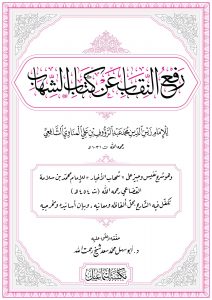 رفع النقاب عن كتاب الشهاب
للإمام زين الدين محمد عبد الرؤوف بن علي المناوي الشافعي
رحمه الله (ت ١٠٣١ هـ)
وهو شرح نفيس وجيز على «شهاب الأخبار» للإمام محمد بن سلامة
القضاعي رحمه الله (ت ٤٥٤ هـ)
تكفل فيه الشارح بحل ألفاظه ومعانيه، وبيان أسانيده وتخريجه
حققه وعلق عليه
د. أبو سهيل محمد